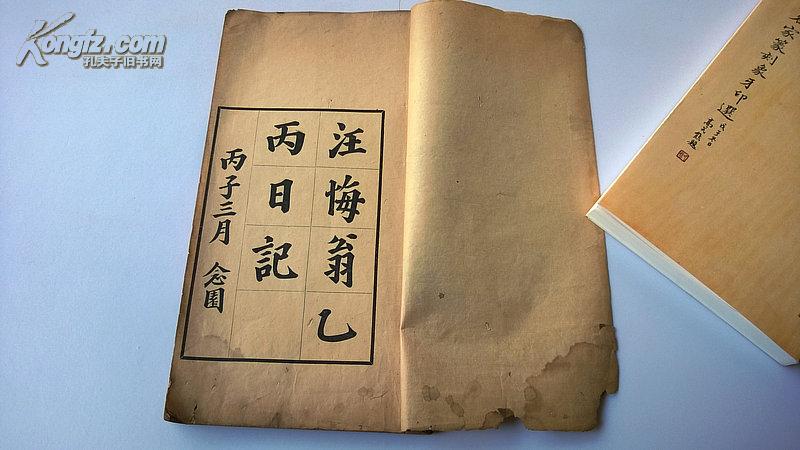 Kongfz.com
孔夫子旧书网
汪悔翁乙
丙日記
丙子三月 念園
名家篆刻象牙印選